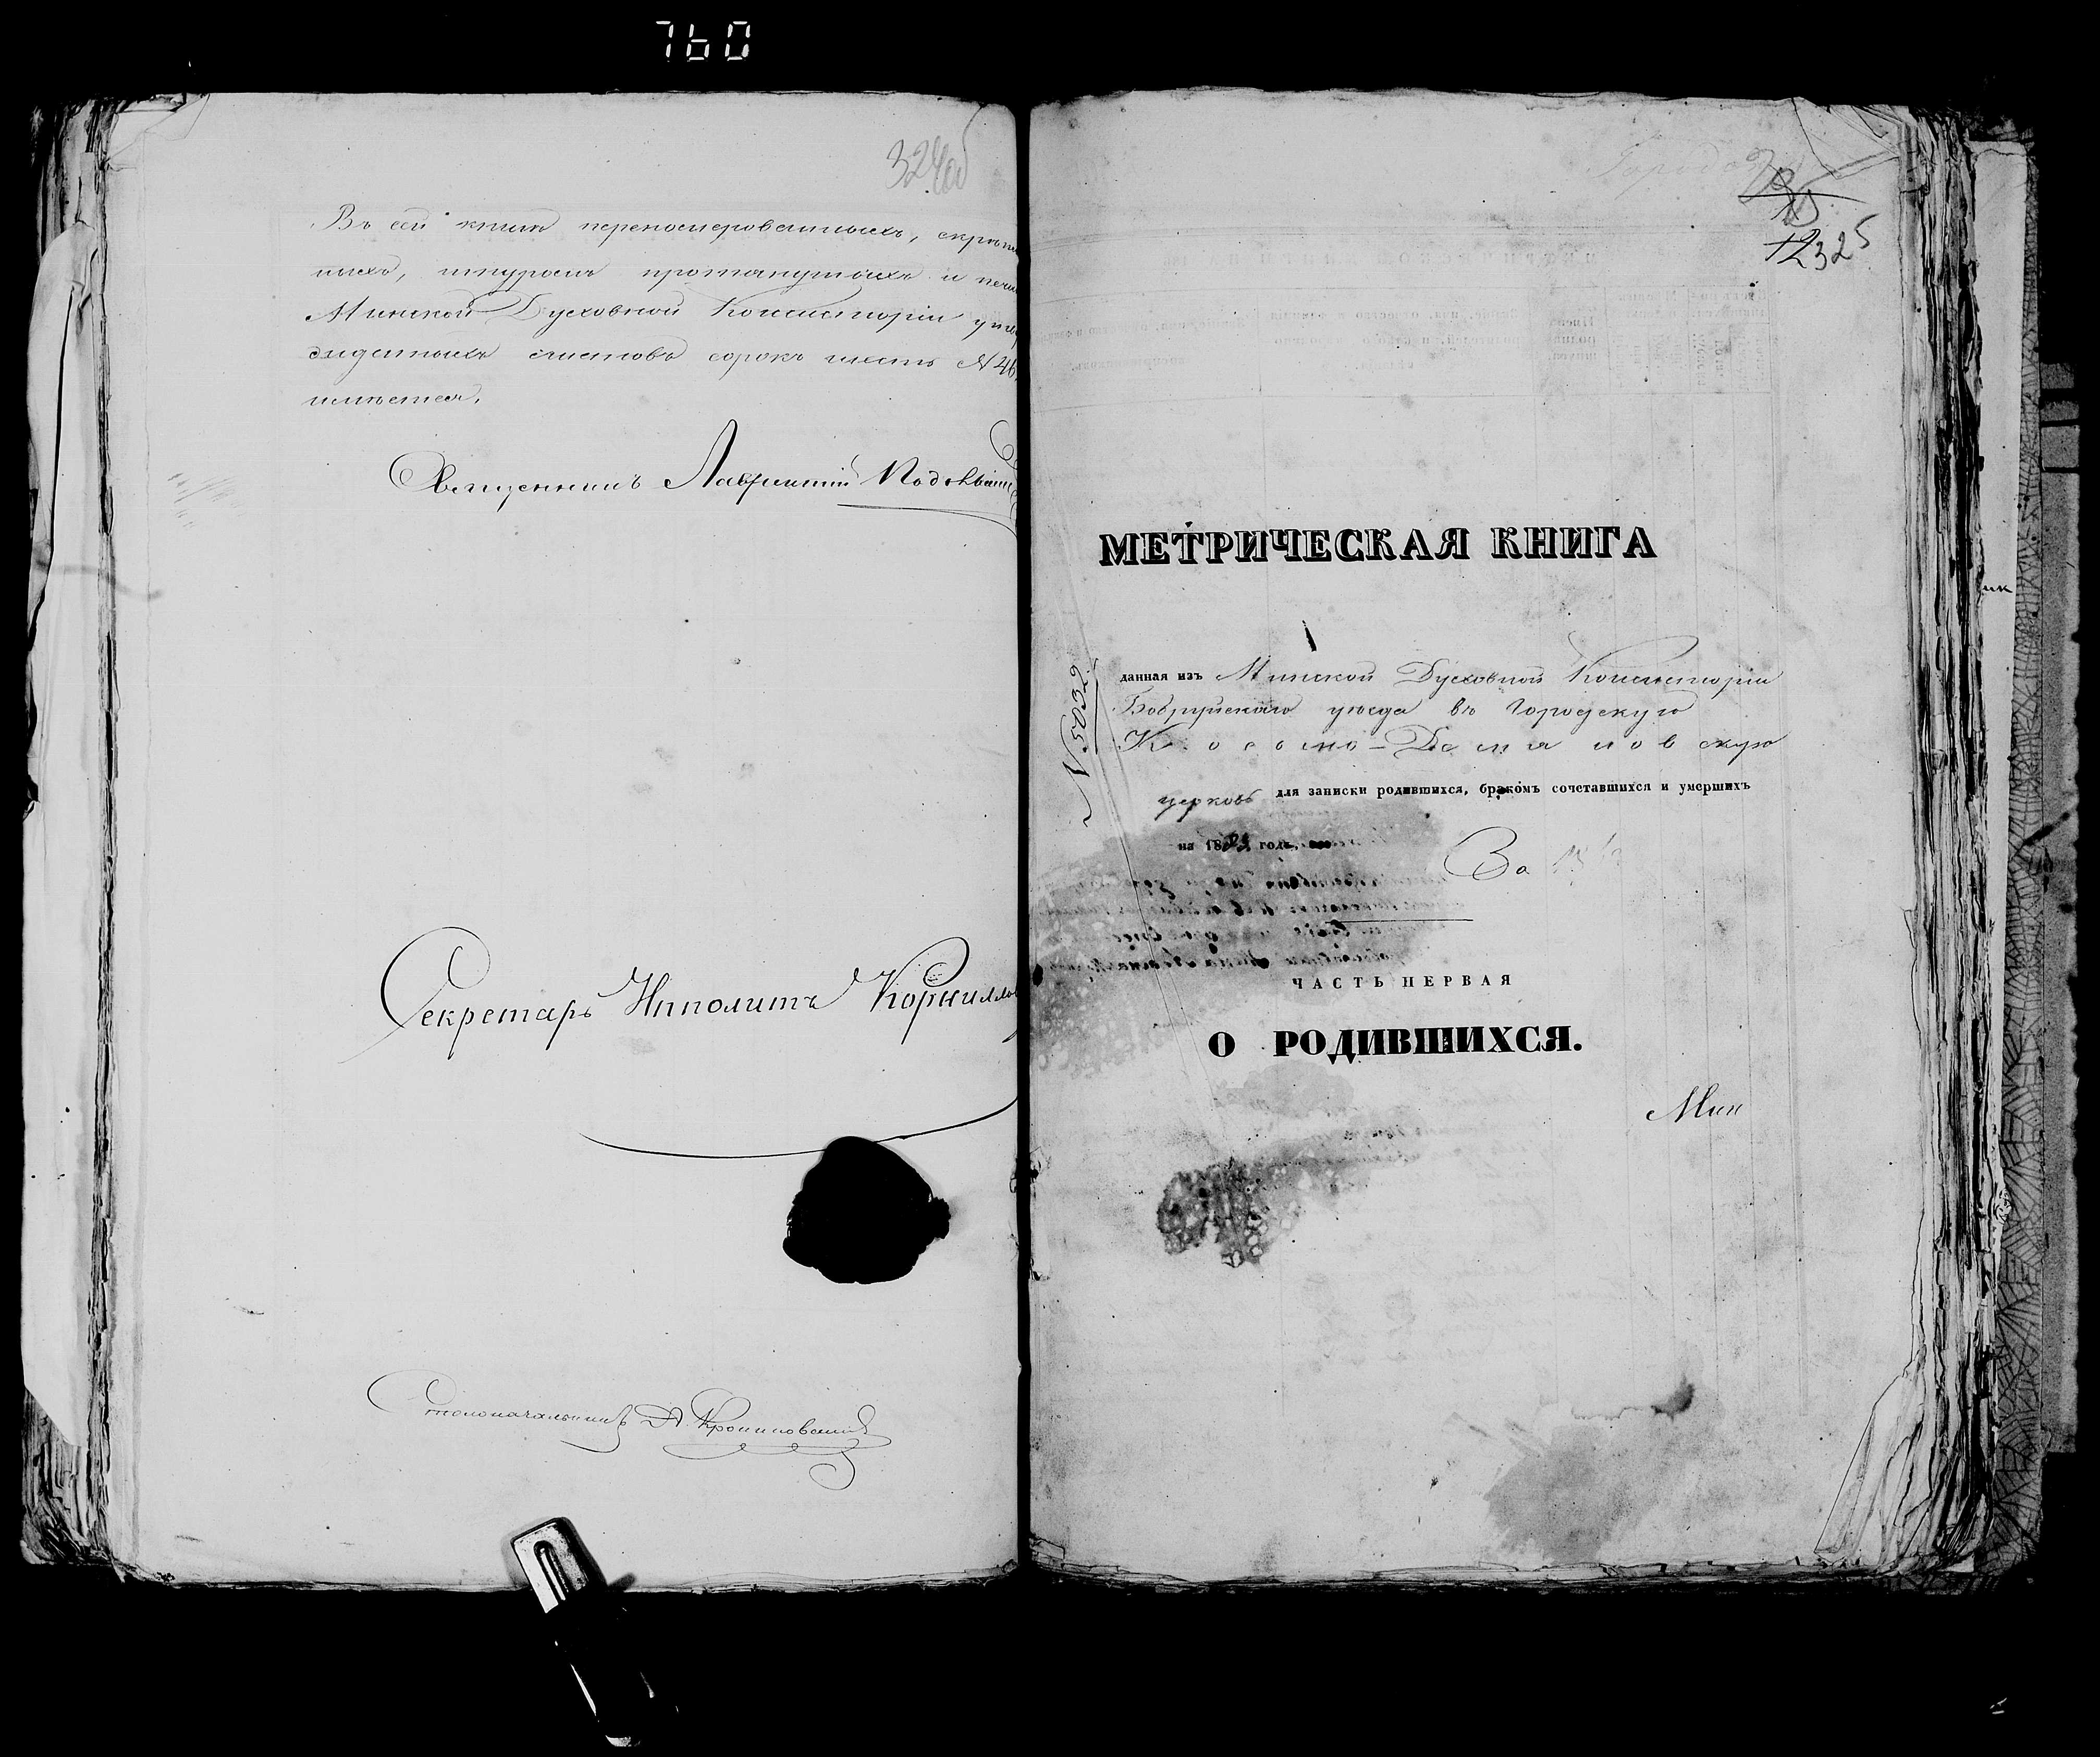 760
324об
Въ сей книгѣ перенумерованныхъ, скрѣплен
ныхъ, шнуромъ протянутыхъ и печа
Минской Духовной Консисторіи утвер
жденныхъ листовъ сорокъ шесть №46
имѣется.
Священникъ Лаврентій
Секретарь Ипполитъ Корнилло
Столоначальникъ
325
МЕТРИЧЕСКАЯ КНИГА
№5032
данная изъ Минской Духовной Консисторіи
Бобруйскаго уѣзда въ Городскую
Космо-Даміановскую
церковь для записки родившихся, бракомъ сочетавшихся и умершихъ
на 18 годъ.
За
ЧАСТЬ ПЕРВАЯ
О РОДИВШИХСЯ.
Мин